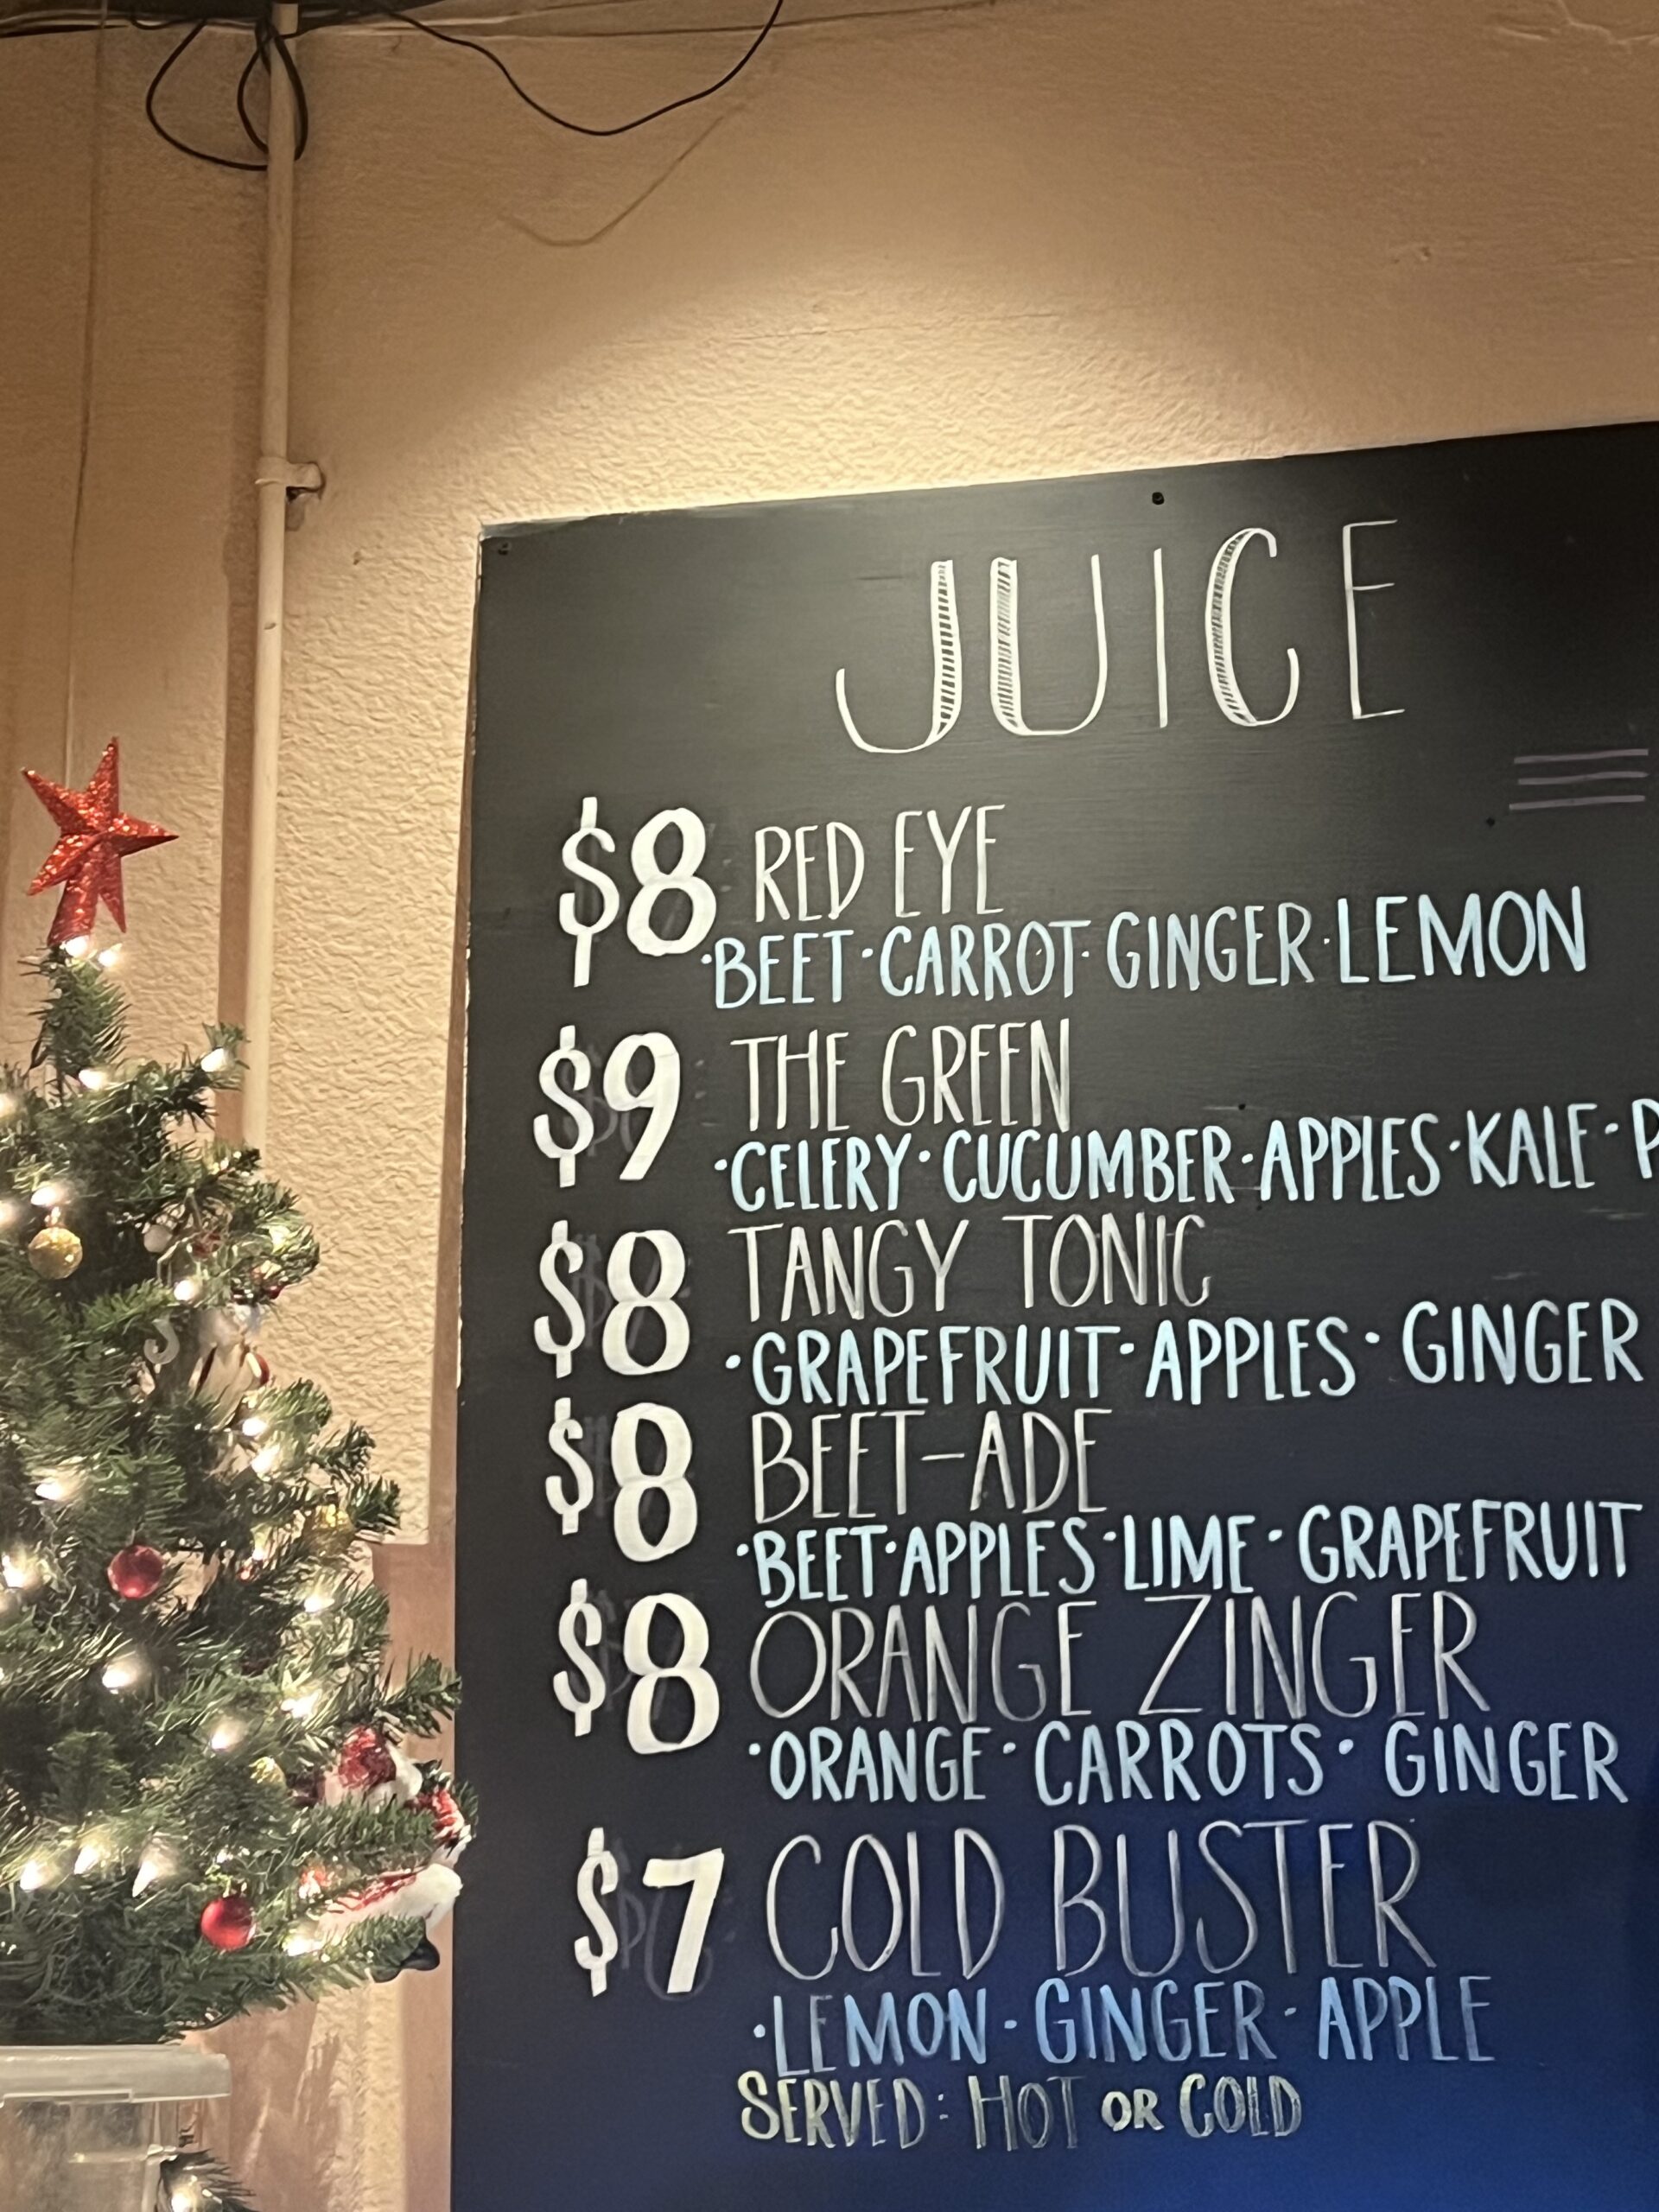 JUICE
$8 RED EYE
·BEET·CARROT·GINGER·LEMON
$9 THE GREEN
·CELERY·CUCUMBER·APPLES·KALE·
$8 TANGY TONIC
·GRAPEFRUIT·APPLES·GINGER
$8 BEET-ADE
·BEET·APPLES·LIME·GRAPEFRUIT
$8 ORANGE ZINGER
·ORANGE·CARROTS·GINGER
$7 COLD BUSTER
·LEMON·GINGER·APPLE
SERVED: HOT OR COLD